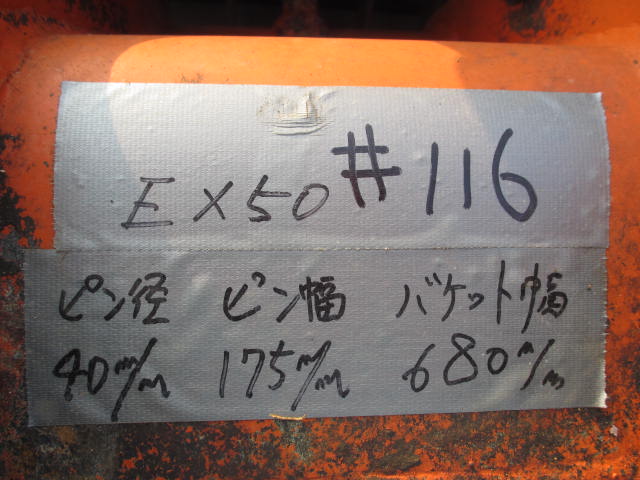 EX50 #116
ピン径 ピン幅 バケット幅
40m/m 175m/m 680m/m